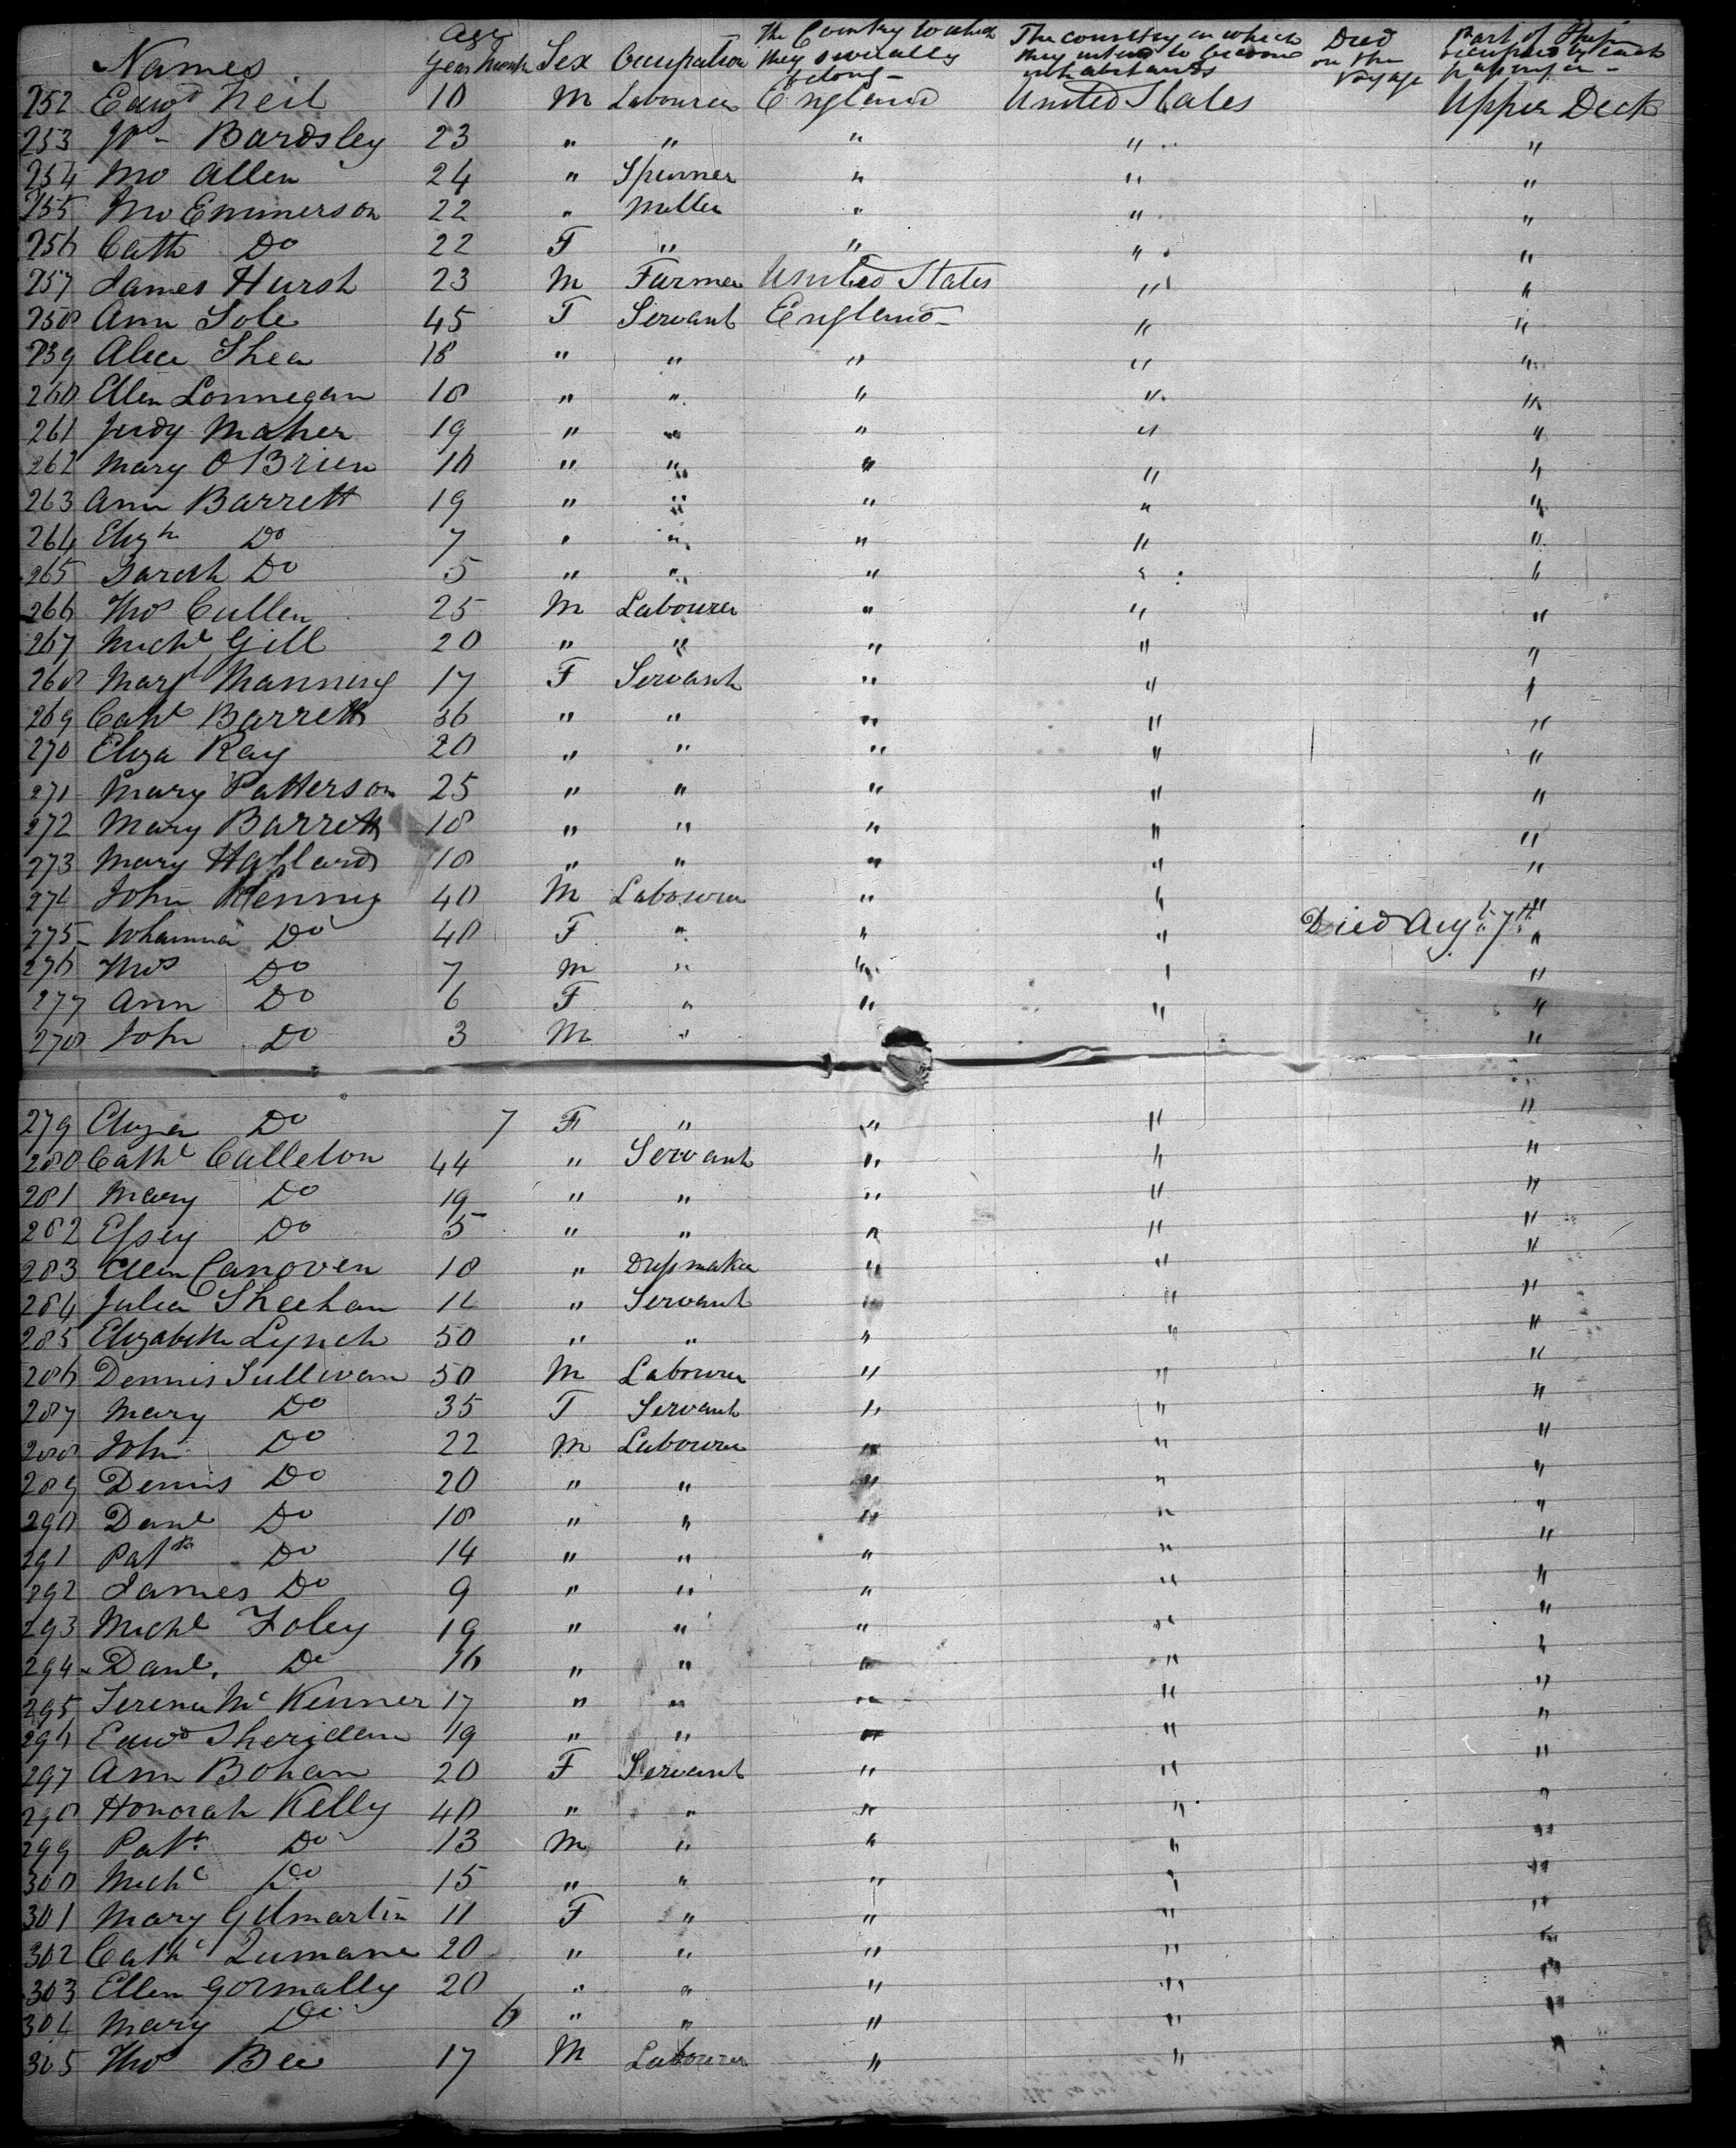 Names Age Year Month Sex Occupation The Country to which they severally belong - The country in which they intend to become inhabitants Died on the Voyage Part of Ship occupied by each passenger -
252 Edwd Neil 18 M Labourer England United States Upper Deck
253 Wm Bardsley 23 " " " " "
254 Jno Allen 24 " Spinner " " "
255 Jno Emmerson 22 " Miller " " "
256 Cath Do 22 F " " " "
257 James Hursh 23 M Farmer United States " "
258 Ann Sole 45 F Servant England - " "
259 Alice Shea 18 " " " " "
260 Ellen Lonnegan 18 " " " " "
261 Judy Maher 19 " " " " "
262 Mary O Brien 16 " " " " "
263 Ann Barrett 19 " " " " "
264 Elizh Do 7 " " " " "
265 Sarah Do 5 " " " " "
266 Thos Cullen 25 M Labourer " " "
267 Michl Gill 20 " " " " "
268 Margt Manning 17 F Servant " " "
269 Cathe Barrett 36 " " " " "
270 Eliza Ray 20 " " " " "
271 Mary Patterson 25 " " " " "
272 Mary Barrett 18 " " " " "
273 Mary 18 " " " " "
274 John 40 M Labourer " " "
275 Johanna Do 40 F " " " Died Augt 7th "
276 Thos Do 7 M " " " "
277 Ann Do 6 F " " " "
278 John Do 3 M " "
279 Eliza Do 7 F " " " "
280 Cathe Calleton 44 " Servant " " "
281 Mary Do 19 " " " " "
282 Essey Do 5 " " " " "
283 Ellen Canoven 18 " Dressmaker " " "
284 Julia Sheehan 14 " Servant " " "
285 Elizabeth Lynch 50 " " " " "
286 Dennis Sullivan 50 M Labourer " " "
287 Mary Do 35 F Servant " " "
288 John Do 22 M Labourer " " "
289 Dennis Do 20 " " " " "
290 Danl Do 18 " " " " "
291 Patk Do 14 " " " " "
292 James Do 9 " " " " "
293 Michl Foley 19 " " " " "
294 Danl. Do 16 " " " " "
295 Mc Kenner 17 " " " " "
296 Edwd Sheridan 19 " " " " "
297 Ann Bohan 20 F Servant " " "
298 Honorah Kelly 40 " " " " "
299 Patk Do 13 M " " " "
300 Michl Do 15 " " " " "
301 Mary Gilmartin 11 F " " " "
302 Cathe 20 " " " " "
303 Ellen Gormally 20 " " " " "
304 Mary Do 6 " " " " "
305 Thos Bee 17 M Labourer " " "